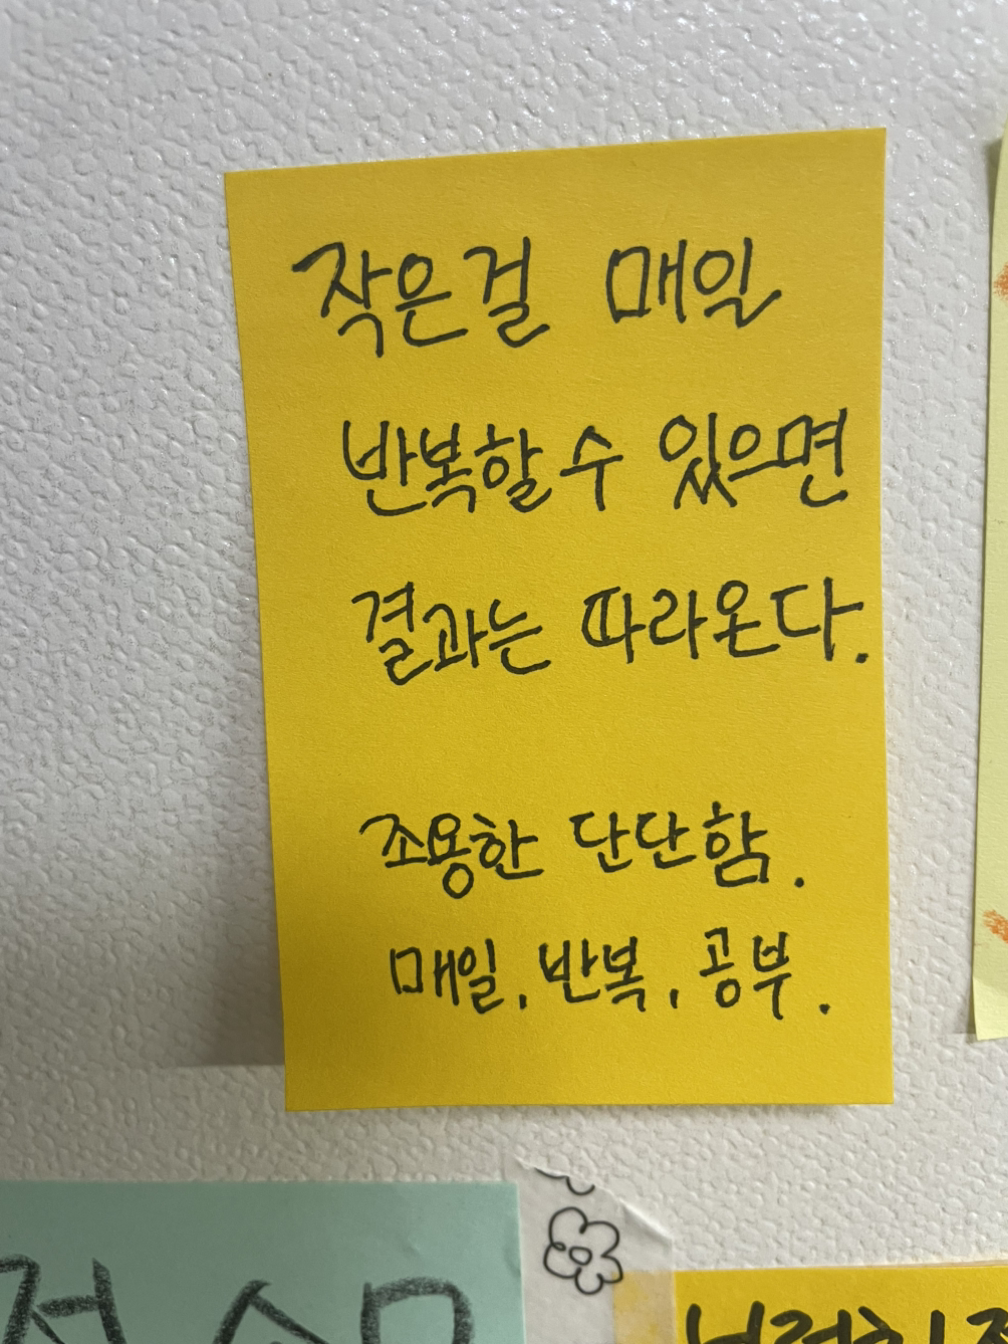 작은걸 매일
반복할 수 있으면
결과는 따라온다.
조용한 단단함.
매일, 반복, 공부.